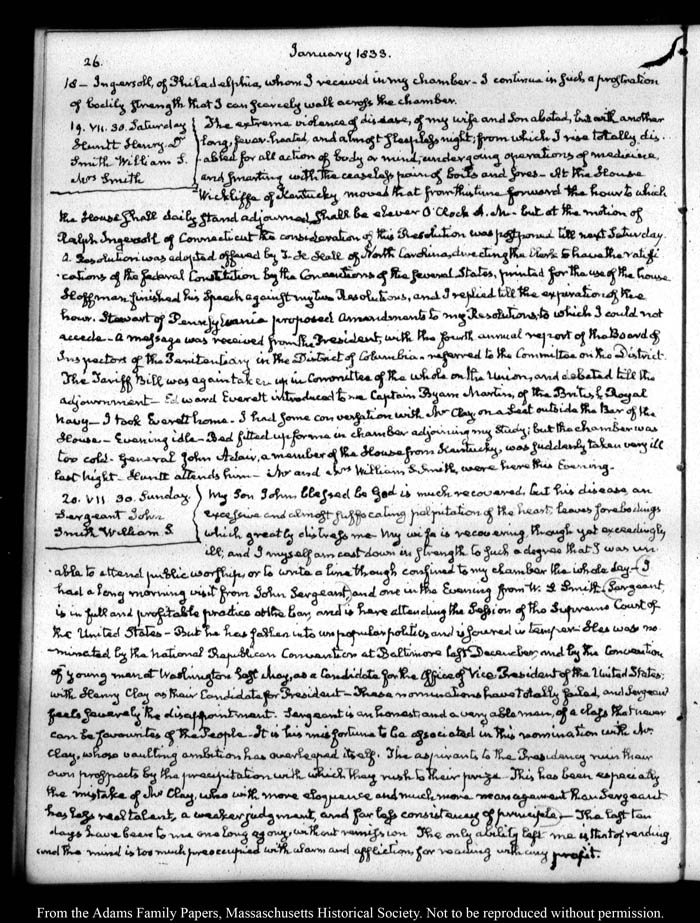 26.
January 1833.
18 - Ingersoll, of Philadelphia, whom I received in my chamber - I continue in such a prostration
of bodily strength that I can scarcely walk across the chamber.
19. VII. 30. Saturday
Huntt Henry
Smith William S.
Mrs Smith
The extreme violence of disease, of my wife and Son abated, but with another
long, fever-heated, and almost sleepless night, from which I rise totally dis-
abled for all action of body or mind, undergoing operations of medicine,
and smarting with the ceaseless pain of boils and sores - At the House
Wickliffe of Kentucky moved that from this time forward the hour to which
the House shall daily stand adjourned, shall be eleven O'Clock A.M. - but at the motion of
Ralph Ingersoll of Connecticut the consideration of this Resolution was postponed till next Saturday.
A Resolution was adopted offered by T. H. Hall of North Carolina, directing the Clerk to have the ratifi-
-cations of the federal Constitution by the Conventions of the several States, printed for the use of the house
Hoffman finished his Speech against my two Resolutions, and I replied till the expiration of the
hour. Stewart of Pennsylvania proposed Amendments to my Resolutions, to which I could not
accede - A message was received from the President, with the fourth annual report of the Board of
Inspectors of the Penitentiary in the District of Columbia - referred to the Committee on the District.
The Tariff Bill was again taken up in Committee of the whole on the Union, and debated till the
adjournment - Edward Everett introduced to me Captain Byam Martin, of the British Royal
Navy - I took Everett home. I had some conversation with Mr Clay on a seat outside the Bar of the
House - Evening idle - Bed fitted up for me in chamber adjoining my study; but the chamber was
too cold - General John Adair, a member of the House from Kentucky, was suddenly taken very ill
last night - Huntt attends him - Mr and Mrs William S. Smith, were here this Evening.
20. VII. 30. Sunday.
Sergeant John
Smith William S.
My Son John, blessed be God is much recovered, but his disease, an
excessive and almost suffocating palpitation of the heart, leaves forebodings
which greatly distress me My wife is recovering, though yet exceedingly
ill, and I myself am cast down in strength to such a degree that I was un-
-able to attend public worship, or to write a line though confined to my chamber the whole day - I
had a long morning visit from John Sergeant, and one in the Evening from W. S. Smith (Sergeant,
is in full and profitable practice at the bar, and is here attending the Session of the Supreme Court of
the United States - But he has fallen into unpopular politics, and is soured in temper - He was no-
-minated by the National Republican Convention at Baltimore last December, and by the Convention
of young men at Washington last May, as a Candidate for the Office of Vice President of the United States,
with Henry Clay as their Candidate for President - These nominations have totally failed, and Sergeant
feels severely the disappointment. Sergeant is an honest, and a very able man, of a class that never
can be favourites of the People - It is his misfortune to be associated in this nomination with Mr
Clay, whose vaulting ambition has overleaped itself. The aspirants to the Presidency ruin their
own prospects by the precipitation with which they rush to their prize - This has been especially
the mistake of Mr Clay, who with more eloquence and much more management than Sergeant
has less real talent, a weaker judgment, and far less consistency of principle, - The last ten
days have been to me one long agony, without remission The only ability left me is that of reading
and the mind is too much preoccupied with alarm and affliction, for reading with any profit.
From the Adams Family Papers, Massachusetts Historical Society. Not to be reproduced without permission.